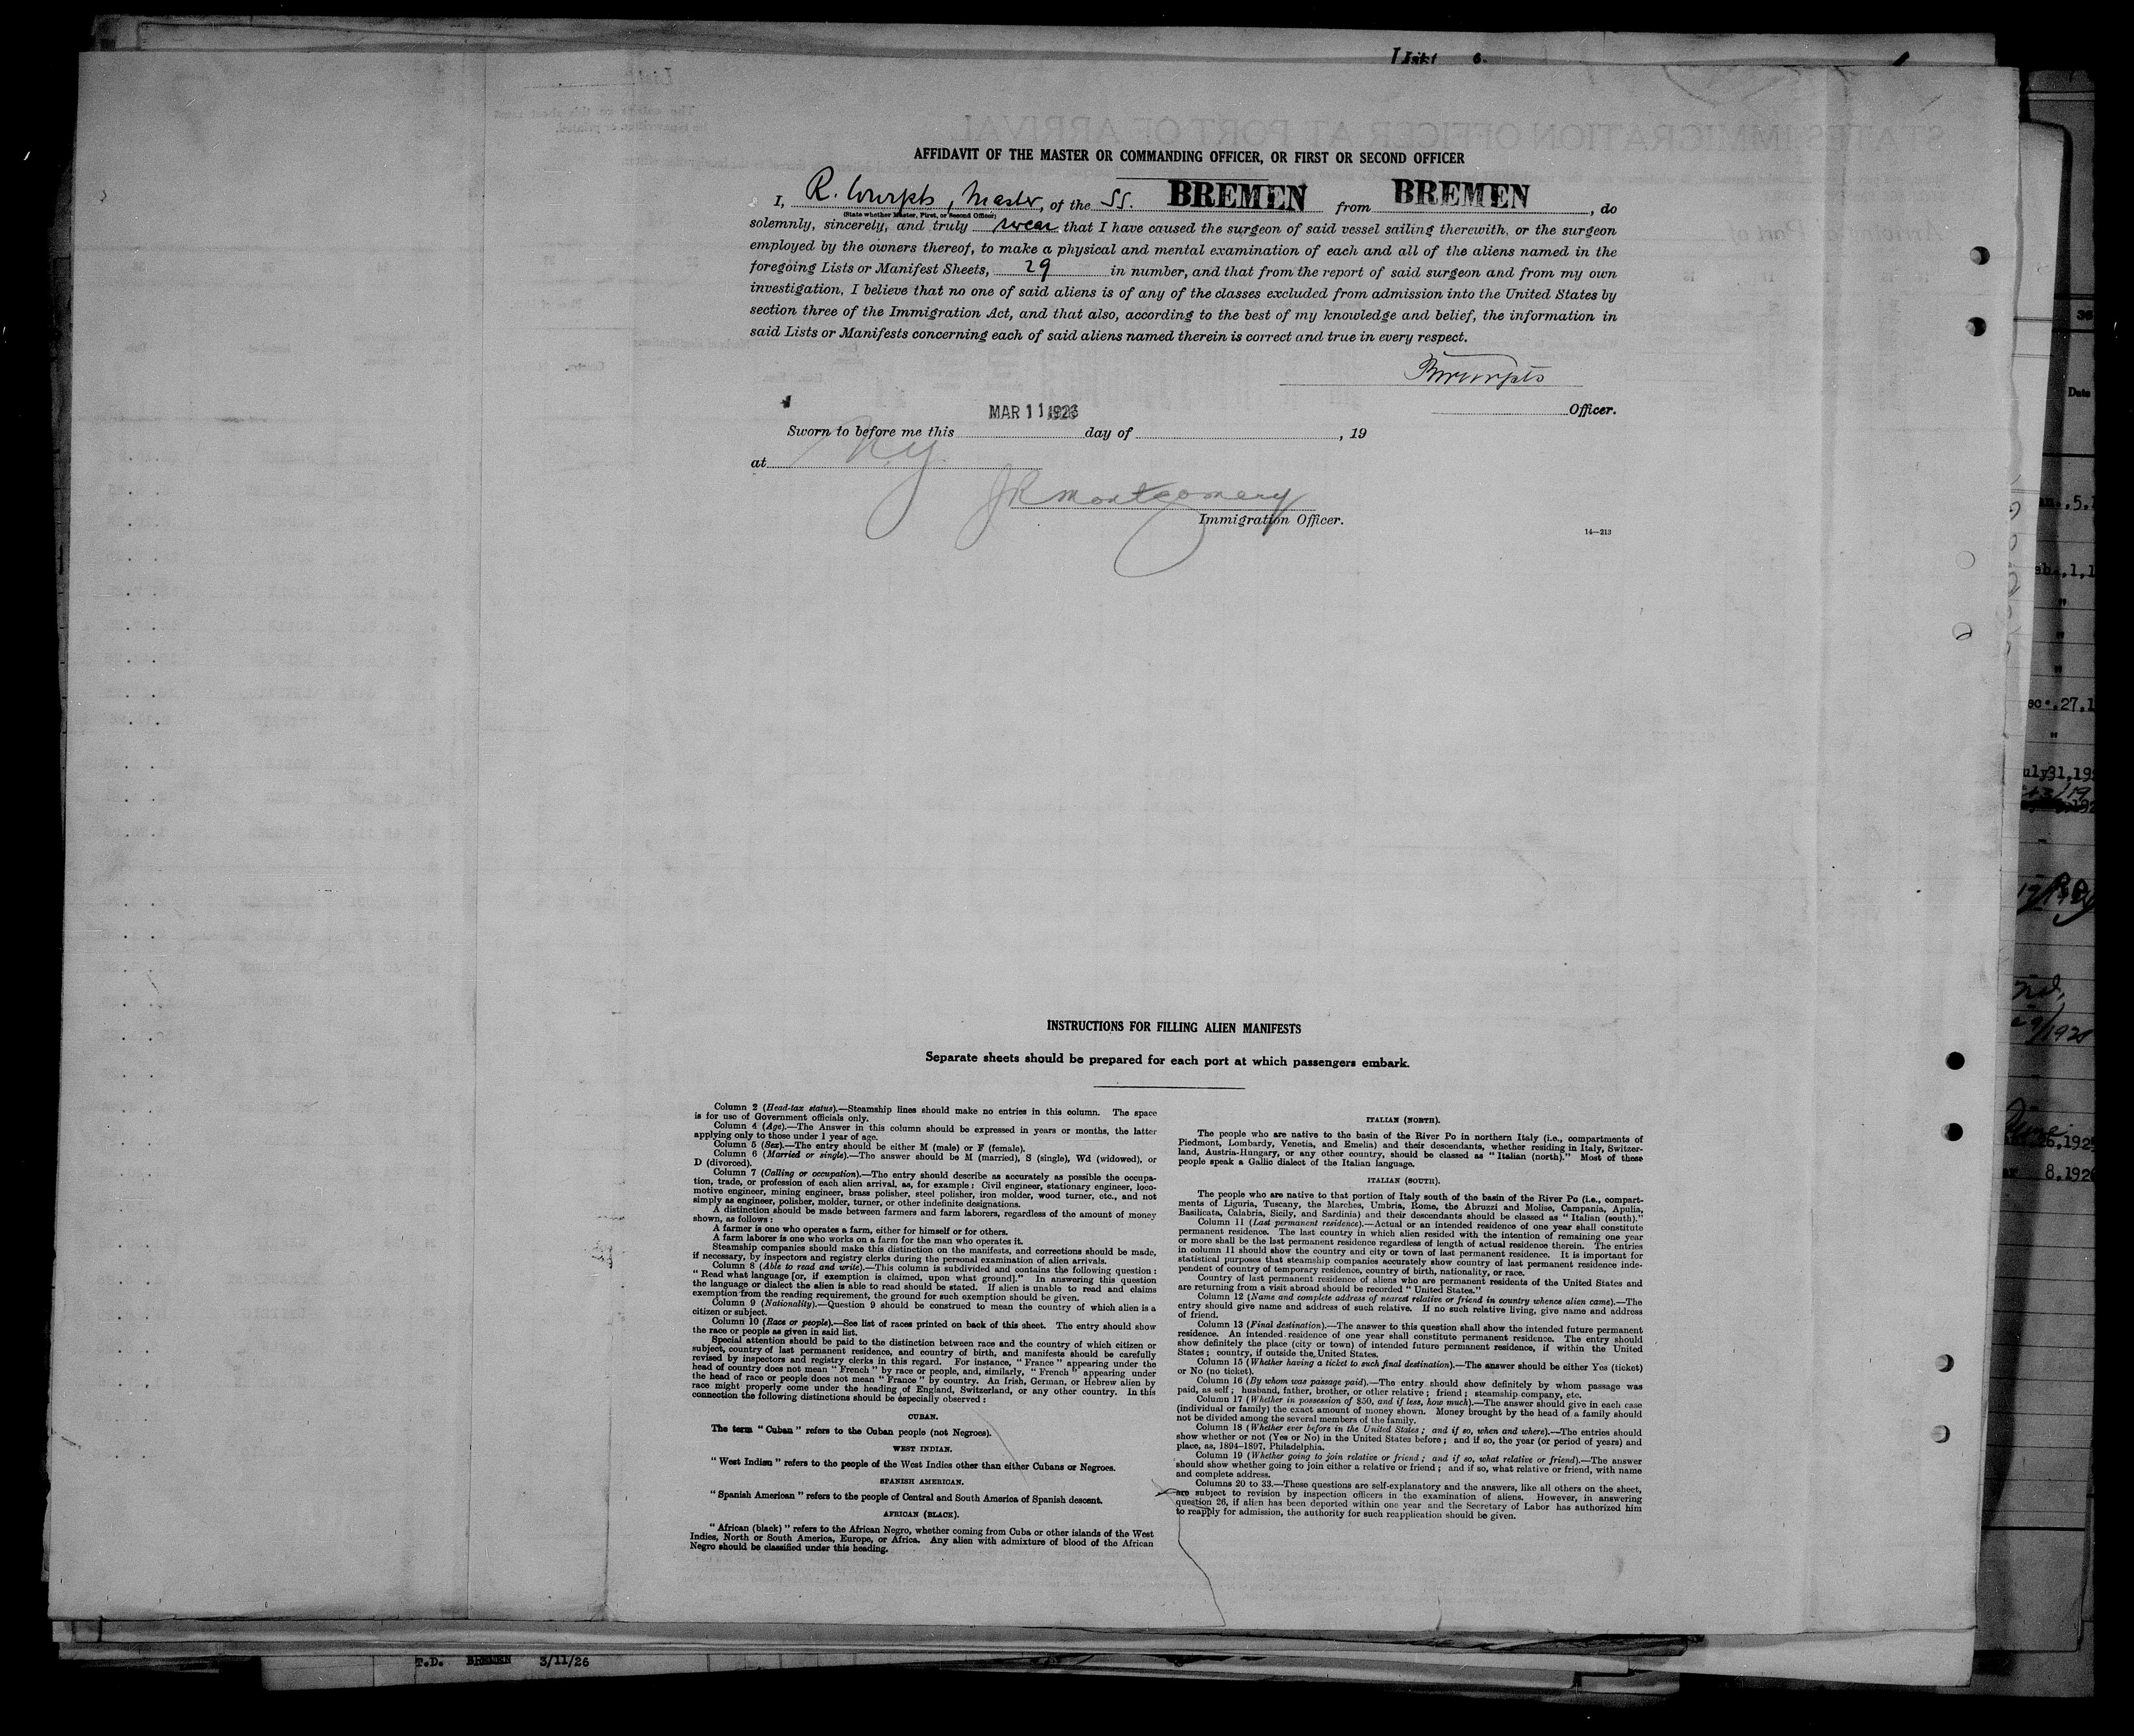 List 6.
AFFIDAVIT OF THE MASTER OR COMMANDING OFFICER, OR FIRST OR SECOND OFFICER
I, R. Wurpts, Master, of the SS. BREMEN from BREMEN, do
(State whether Master, First, or Second Officer)
solemnly, sincerely, and truly swear that I have caused the surgeon of said vessel sailing therewith, or the surgeon
employed by the owners thereof, to make a physical and mental examination of each and all of the aliens named in the
foregoing Lists or Manifest Sheets, 29 in number, and that from the report of said surgeon and from my own
investigation, I believe that no one of said aliens is of any of the classes excluded from admission into the United States by
section three of the Immigration Act, and that also, according to the best of my knowledge and belief, the information in
said Lists or Manifests concerning each of said aliens named therein is correct and true in every respect.
RWurpts
Officer.
MAR 11 1926
Sworn to before me this day of , 19
at N.Y.
JR Montgomery
Immigration Officer.
14—213
INSTRUCTIONS FOR FILLING ALIEN MANIFESTS
Separate sheets should be prepared for each port at which passengers embark.
Column 2 (Head-tax status).—Steamship lines should make no entries in this column. The space
is for use of Government officials only.
Column 4 (Age).—The Answer in this column should be expressed in years or months, the latter
applying only to those under 1 year of age.
Column 5 (Sex).—The entry should be either M (male) or F (female).
Column 6 (Married or single).—The answer should be M (married), S (single), Wd (widowed), or
D (divorced).
Column 7 (Calling or occupation).—The entry should describe as accurately as possible the occupa-
tion, trade, or profession of each alien arrival, as, for example: Civil engineer, stationary engineer, loco-
motive engineer, mining engineer, brass polisher, steel polisher, iron molder, wood turner, etc., and not
simply as engineer, polisher, molder, turner, or other indefinite designations.
A distinction should be made between farmers and farm laborers, regardless of the amount of money
shown, as follows:
A farmer is one who operates a farm, either for himself or for others.
A farm laborer is one who works on a farm for the man who operates it.
Steamship companies should make this distinction on the manifests, and corrections should be made,
if necessary, by inspectors and registry clerks during the personal examination of alien arrivals.
Column 8 (Able to read and write).—This column is subdivided and contains the following question:
"Read what language [or, if exemption is claimed, upon what ground]." In answering this question
the language or dialect the alien is able to read should be stated. If alien is unable to read and claims
exemption from the reading requirement, the ground for such exemption should be given.
Column 9 (Nationality).—Question 9 should be construed to mean the country of which alien is a
citizen or subject.
Column 10 (Race or people).—See list of races printed on back of this sheet. The entry should show
the race or people as given in said list.
Special attention should be paid to the distinction between race and the country of which citizen or
subject, country of last permanent residence, and country of birth, and manifests should be carefully
revised by inspectors and registry clerks in this regard. For instance, "France" appearing under the
head of country does not mean "French" by race or people, and, similarly, "French" appearing under
the head of race or people does not mean "France" by country. An Irish, German, or Hebrew alien by
race might properly come under the heading of England, Switzerland, or any other country. In this
connection the following distinctions should be especially observed:
CUBAN.
The term "Cuban" refers to the Cuban people (not Negroes).
WEST INDIAN.
"West Indian" refers to the people of the West Indies other than either Cubans or Negroes.
SPANISH AMERICAN.
"Spanish American" refers to the people of Central and South America of Spanish descent.
AFRICAN (BLACK).
"African (black)" refers to the African Negro, whether coming from Cuba or other islands of the West
Indies, North or South America, Europe, or Africa. Any alien with admixture of blood of the African
Negro should be classified under this heading.
ITALIAN (NORTH).
The people who are native to the basin of the River Po in northern Italy (i.e., compartments of
Piedmont, Lombardy, Venetia, and Emelia) and their descendants, whether residing in Italy, Switzer-
land, Austria-Hungary, or any other country, should be classed as "Italian (north)." Most of these
people speak a Gallic dialect of the Italian language.
ITALIAN (SOUTH).
The people who are native to that portion of Italy south of the basin of the River Po (i.e., compart-
ments of Liguria, Tuscany, the Marches, Umbria, Rome, the Abruzzi and Molise, Campania, Apulia,
Basilicata, Calabria, Sicily, and Sardinia) and their descendants should be classed as "Italian (south)."
Column 11 (Last permanent residence).—Actual or an intended residence of one year shall constitute
permanent residence. The last country in which alien resided with the intention of remaining one year
or more shall be the last permanent residence regardless of length of actual residence therein. The entries
in column 11 should show the country and city or town of last permanent residence. It is important for
statistical purposes that steamship companies accurately show country of last permanent residence inde-
pendent of country of temporary residence, country of birth, nationality, or race.
Country of last permanent residence of aliens who are permanent residents of the United States and
are returning from a visit abroad should be recorded "United States."
Column 12 (Name and complete address of nearest relative or friend in country whence alien came).—The
entry should give name and address of such relative. If no such relative living, give name and address
of friend.
Column 13 (Final destination).—The answer to this question shall show the intended future permanent
residence. An intended residence of one year shall constitute permanent residence. The entry should
show definitely the place (city or town) of intended future permanent residence, if within the United
States; country, if outside the United States.
Column 15 (Whether having a ticket to such final destination).—The answer should be either Yes (ticket)
or No (no ticket).
Column 16 (By whom was passage paid).—The entry should show definitely by whom passage was
paid, as self; husband, father, brother, or other relative; friend; steamship company, etc.
Column 17 (Whether in possession of $50, and if less, how much).—The answer should give in each case
(individual or family) the exact amount of money shown. Money brought by the head of a family should
not be divided among the several members of the family.
Column 18 (Whether ever before in the United States; and if so, when and where).—The entries should
show whether or not (Yes or No) in the United States before; and if so, the year (or period of years) and
place, as, 1894-1897, Philadelphia.
Column 19 (Whether going to join relative or friend; and if so, what relative or friend).—The answer
should show whether going to join either a relative or friend; and if so, what relative or friend, with name
and complete address.
Columns 20 to 33.—These questions are self-explanatory and the answers, like all others on the sheet,
are subject to revision by inspection officers in the examination of aliens. However, in answering
question 26, if alien has been deported within one year and the Secretary of Labor has authorized him
to reapply for admission, the authority for such reapplication should be given.
T.D. BREMEN 3/11/26